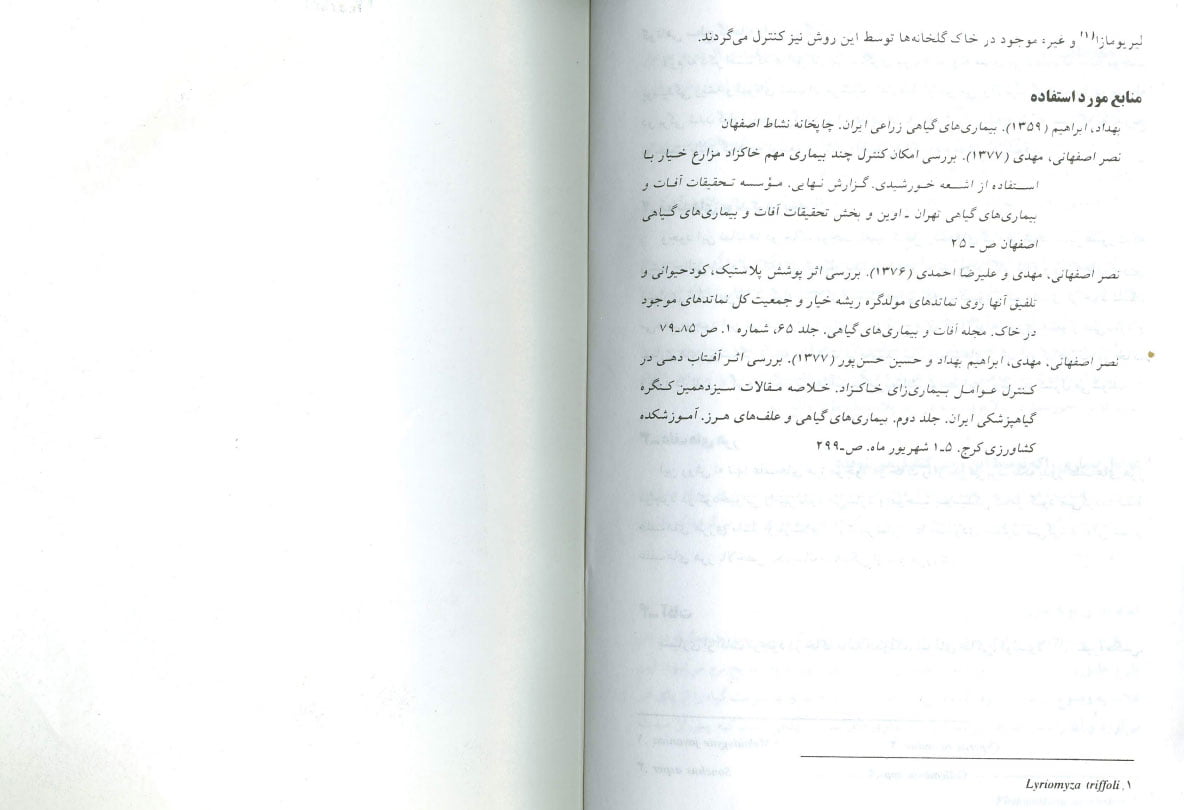 لیریومازا(۱) و غیره موجود در خاک گلخانه‌ها توسط این روش نیز کنترل می‌گردند.
منابع مورد استفاده
بهداد، ابراهیم (۱۳۵۹). بیماری‌های گیاهی زراعی ایران. چاپخانه نشاط اصفهان
نصر اصفهانی، مهدی (۱۳۷۷). بررسی امکان کنترل چند بیماری مهم خاکزاد مزارع خیار با
استفاده از اشعه خورشیدی. گزارش نهایی. مؤسسه تحقیقات آفات و
بیماری‌های گیاهی تهران ـ اوین و بخش تحقیقات آفات و بیماری‌های گیاهی
اصفهان ص ـ ۲۵
نصر اصفهانی، مهدی و علیرضا احمدی (۱۳۷۶). بررسی اثر پوشش پلاستیک، کودحیوانی و
تلفیق آنها روی نماتدهای مولدگره ریشه خیار و جمعیت کل نماتدهای موجود
در خاک. مجله آفات و بیماری‌های گیاهی. جلد ۶۵، شماره ۱. ص ۸۵ـ۷۹
نصر اصفهانی، مهدی، ابراهیم بهداد و حسین حسن‌پور (۱۳۷۷). بررسی اثر آفتاب دهی در
کنترل عوامل بیماری‌زای خاکزاد. خلاصه مقالات سیزدهمین کنگره
گیاهپزشکی ایران. جلد دوم. بیماری‌های گیاهی و علف‌های هرز. آموزشکده
کشاورزی کرج. ۵ـ۱ شهریور ماه. ص‌ـ۲۹۹
۱. Lyriomyza triffoli